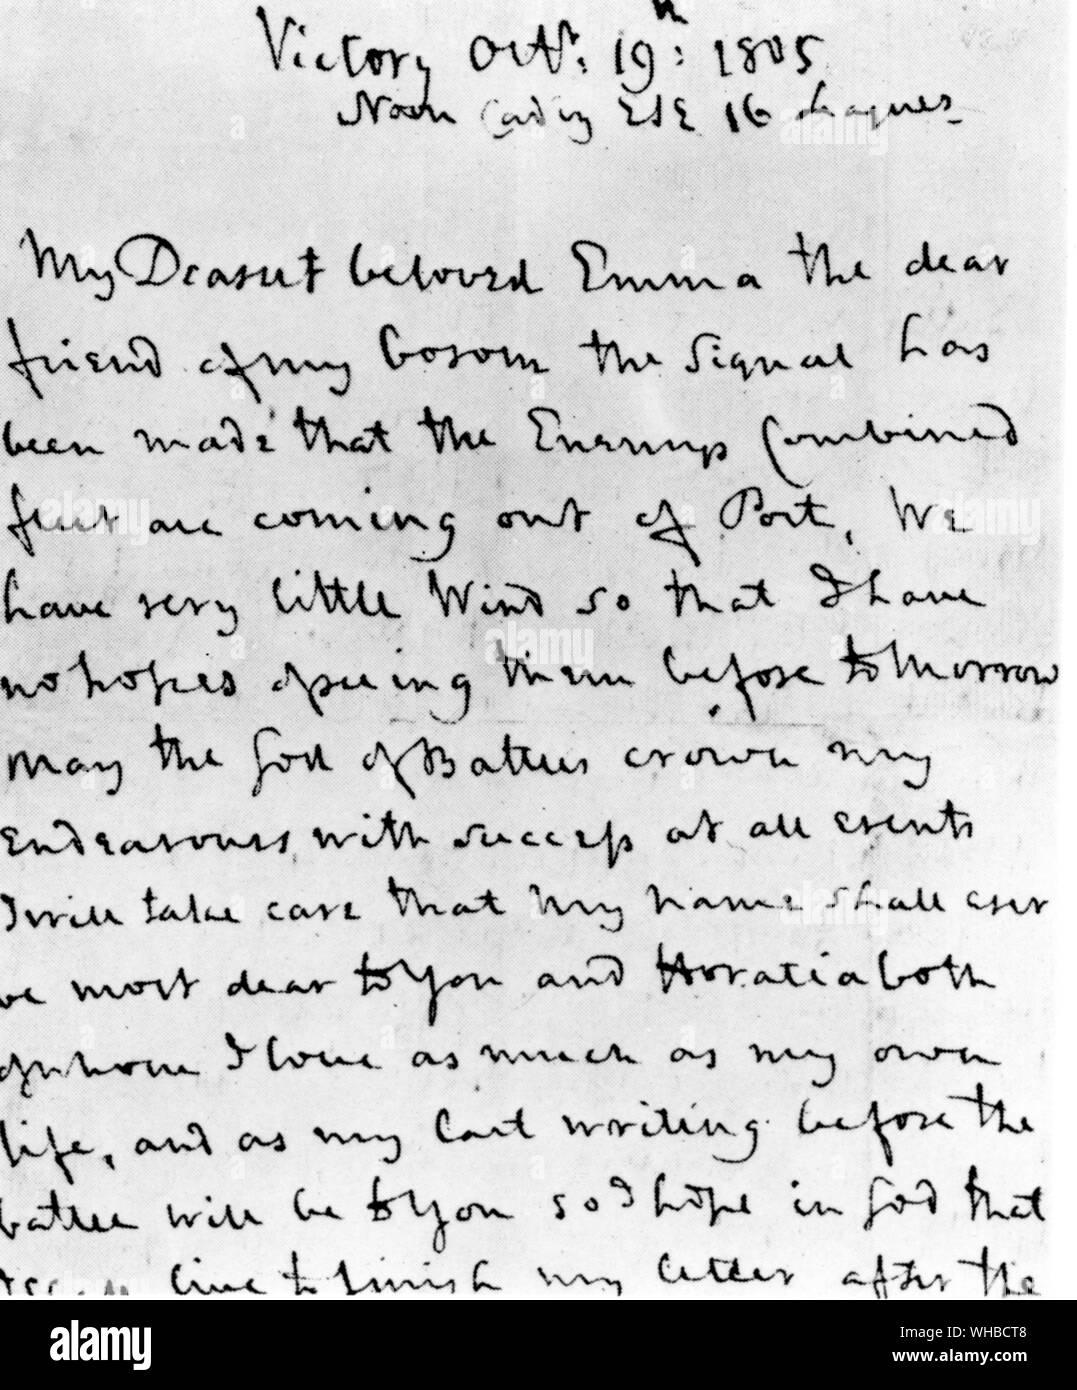 Victory Octbr: 19th: 1805
Noon Cadiz ESE 16 Leagues
My Dearest beloved Emma the dear
friend of my bosom the Signal has
been made that the Enemys Combined
fleet are coming out of Port, We
have very little Wind so that I have
no hopes of seeing them before tomorrow
May the God of Battles crown my
Endeavours with success at all events
I will take care that my name shall ever
be most dear to You and Horatia both
of whom I love as much as my own
life, and as my last writing before the
battle will be to You so I hope in God that
I shall live to finish my letter after the
alamy
Image ID: WHBCT8
www.alamy.com